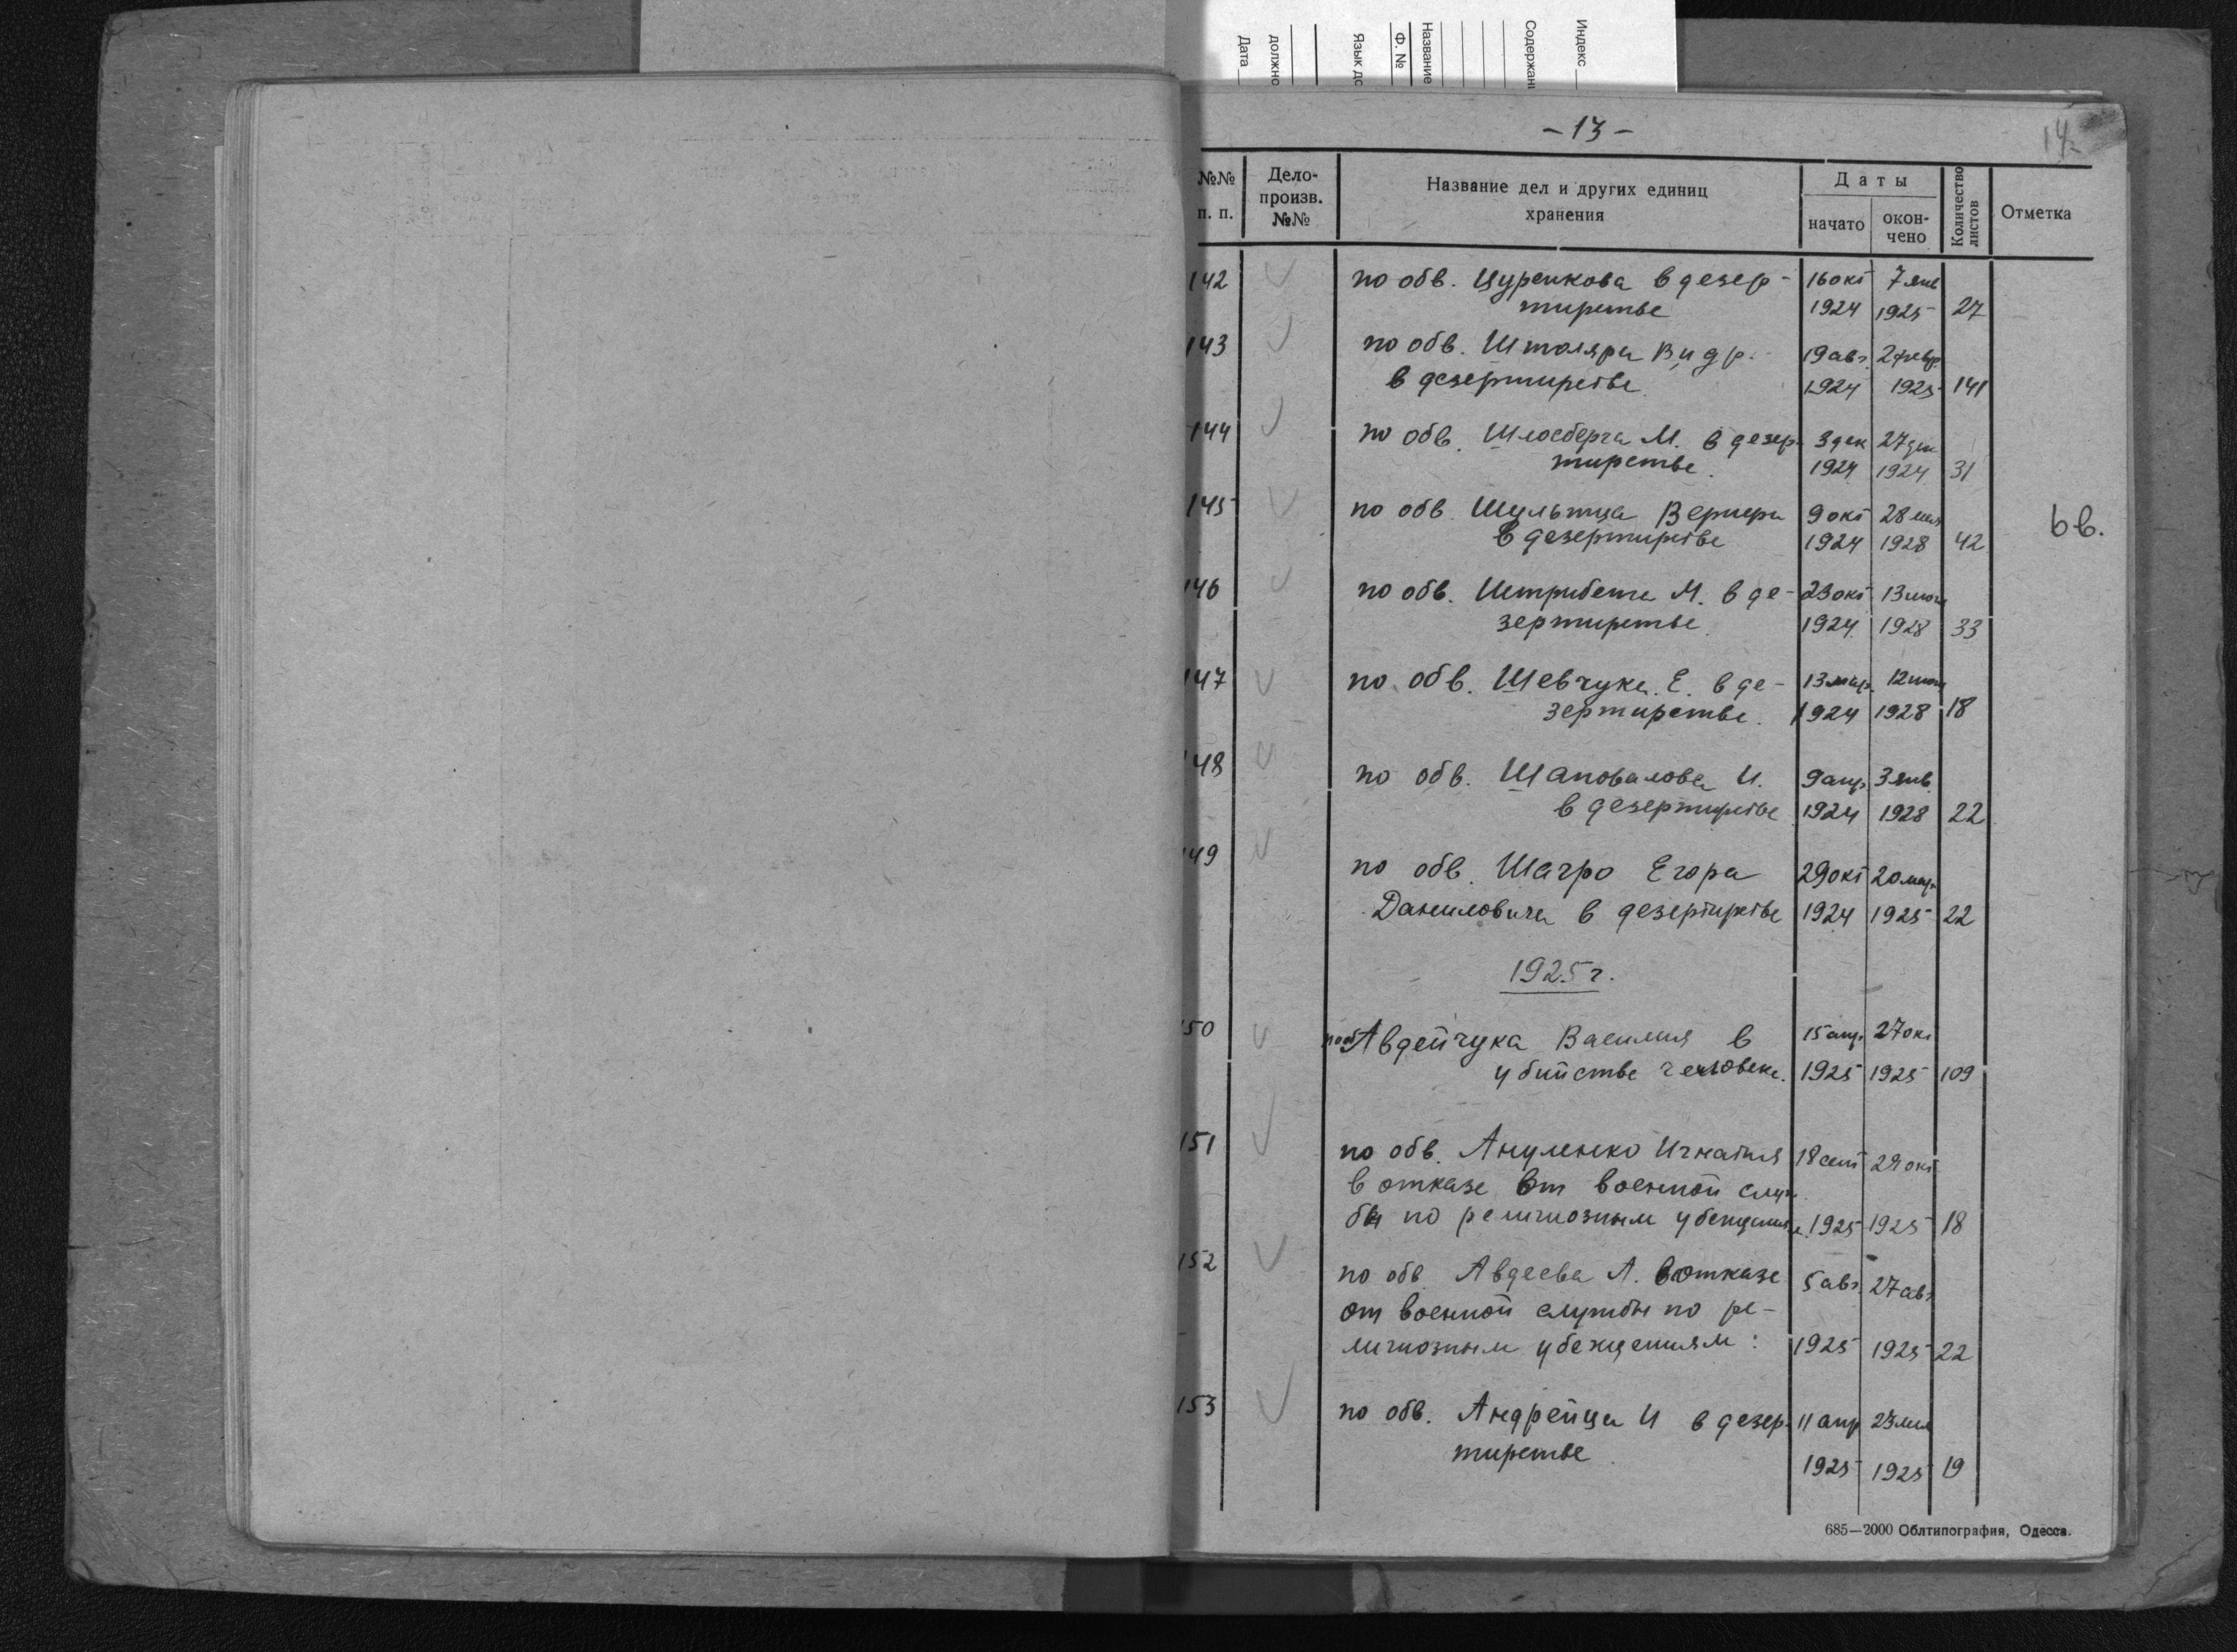 Индекс
Содержан
Название
Ф. №
Язык до
должно
Дата
- 13 -
14
№№ п. п.
Дело-произв. №№
Название дел и других единиц хранения
Даты
начато
окон-чено
Количество листов
Отметка
142 по обв. Цуренкова в дезер- 16 окт 7 янв
тирстве 1924 1925 27
143 по обв. Штоляра В и др. 19 авг. 2 февр.
в дезертирстве 1924 1925 141
144 по обв. Шлосберга М. в дезер- 3 дек 27 дек
тирстве. 1924 1924 31
145 по обв. Шультца Вернера 9 окт 28
в дезертирстве 1924 1928 42 бв.
146 по обв. Штрибета М. в де- 23 окт 13
зертирстве. 1924 1928 33
147 по обв. Шевчука Е. в де- 13 мар. 12
зертирстве. 1924 1928 18
148 по обв. Шаповалова И. 9 апр. 3 янв
в дезертирстве 1924 1928 22
149 по обв. Шагро Егора 29 окт 20 мар.
Даниловича в дезертирстве 1924 1925 22
1925 г.
150 по об Авдейчука Василия в 15 апр. 27 окт
убийстве человека. 1925 1925 109
151 по обв. Ануленко Игнатия 18 сент 29 окт
в отказе от военной служ
бы по религиозным убеждениям 1925 1925 18
152 по обв. Авдеева А. в отказе 5 авг. 27 авг.
от военной службы по ре-
лигиозным убеждениям: 1925 1925 22
153 по обв. Андрейца И в дезер- 11 апр 23 мая
тирстве 1925 1925 19
685—2000 Облтипография, Одесса.